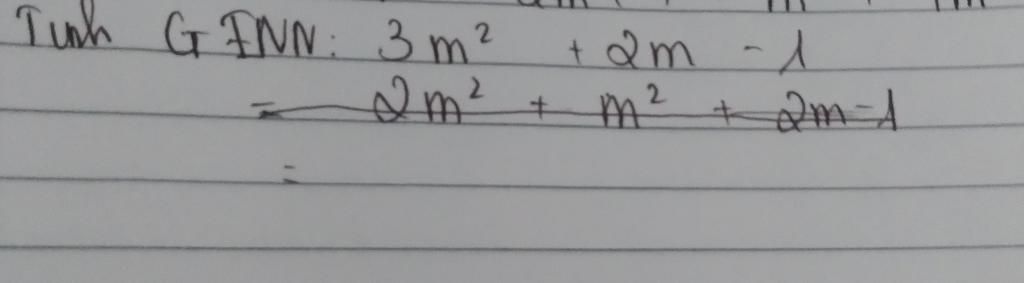 Tính GTNN: 3m² + 2m - 1
= 2m² + m² + 2m - 1
=